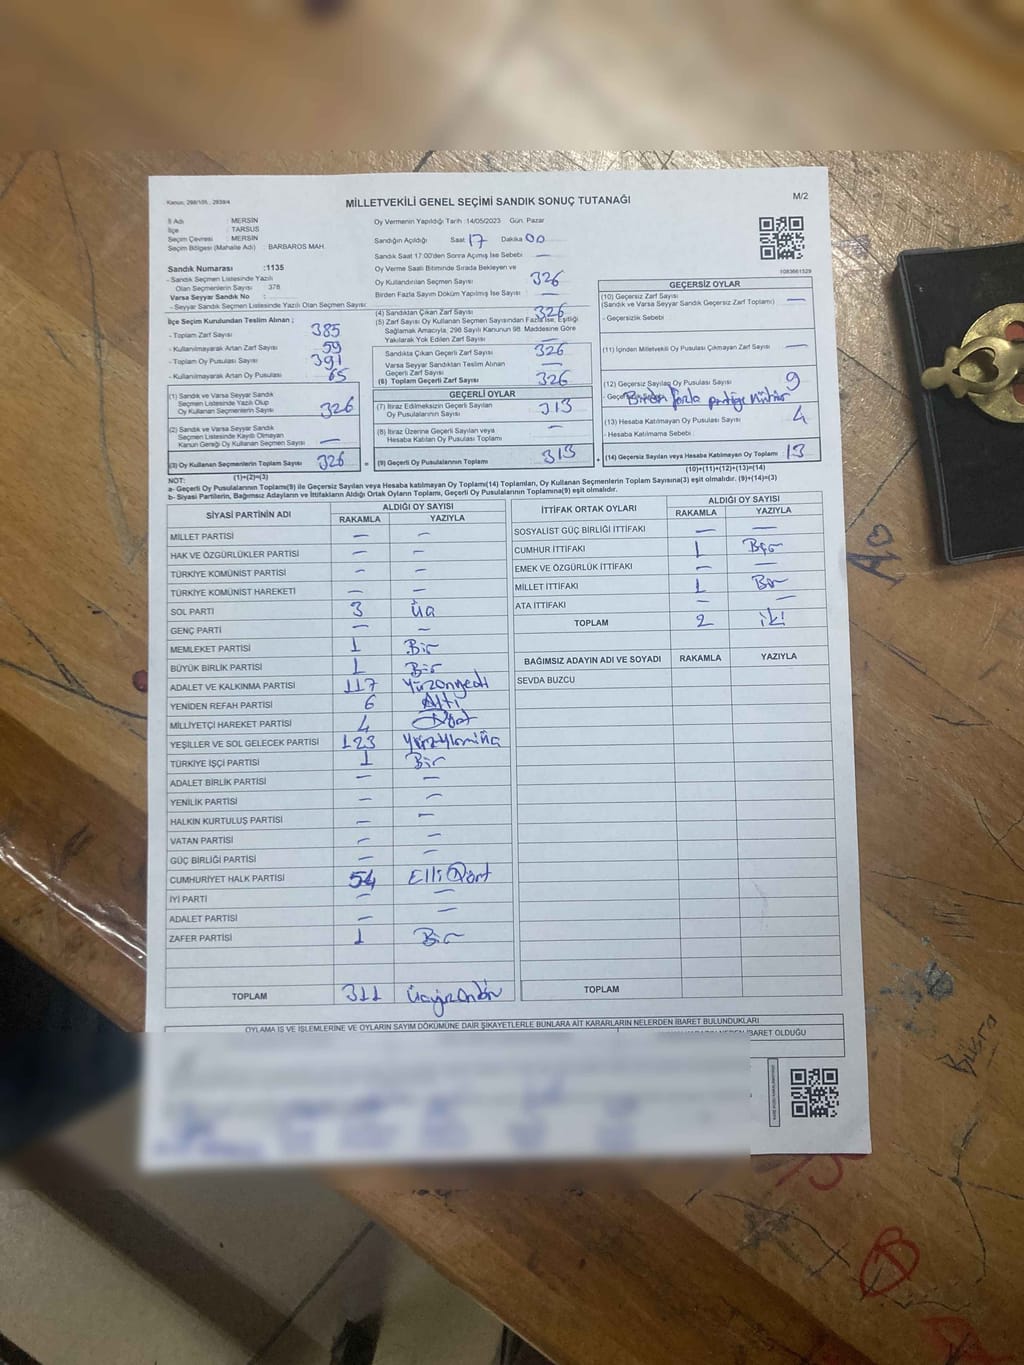 Kanun; 298/105., 2839/4
MİLLETVEKİLİ GENEL SEÇİMİ SANDIK SONUÇ TUTANAĞI
M/2
İl Adı : MERSİN
İlçe : TARSUS
Seçim Çevresi : MERSİN
Seçim Bölgesi (Mahalle Adı) : BARBAROS MAH.
Sandık Numarası :1135
- Sandık Seçmen Listesinde Yazılı
Olan Seçmenlerin Sayısı : 378
Varsa Seyyar Sandık No :
- Seyyar Sandık Listesinde Yazılı Olan Seçmen Sayısı:
İlçe Seçim Kurulundan Teslim Alınan ;
- Toplam Zarf Sayısı 385
- Kullanılmayarak Artan Zarf Sayısı 59
- Toplam Oy Pusulası Sayısı 391
- Kullanılmayarak Artan Oy Pusulası 65
(1) Sandık ve Varsa Seyyar Sandık
Seçmen Listesinde Yazılı Olup
Oy Kullanan Seçmenlerin Sayısı 326
(2) Sandık ve Varsa Seyyar Sandık
Seçmen Listesinde Kayıtlı Olmayan
Kanun Gereği Oy Kullanan Seçmen Sayısı —
(3) Oy Kullanan Seçmenlerin Toplam Sayısı 326
(1)+(2)=(3)
Oy Vermenin Yapıldığı Tarih :14/05/2023 Gün: Pazar
Sandığın Açıldığı Saat 17 Dakika 00
Sandık Saat 17:00'den Sonra Açılmış İse Sebebi —
Oy Verme Saati Bitiminde Sırada Bekleyen ve
Oy Kullandırılan Seçmen Sayısı 326
Birden Fazla Sayım Döküm Yapılmış İse Sayısı —
(4) Sandıktan Çıkan Zarf Sayısı 326
(5) Zarf Sayısı Oy Kullanan Seçmen Sayısından Fazla İse, Eşitliği
Sağlamak Amacıyla, 298 Sayılı Kanunun 98. Maddesine Göre
Yakılarak Yok Edilen Zarf Sayısı —
Sandıkta Çıkan Geçerli Zarf Sayısı 326
Varsa Seyyar Sandıktan Teslim Alınan
Geçerli Zarf Sayısı —
(6) Toplam Geçerli Zarf Sayısı 326
GEÇERLİ OYLAR
(7) İtiraz Edilmeksizin Geçerli Sayılan
Oy Pusulalarının Sayısı 313
(8) İtiraz Üzerine Geçerli Sayılan veya
Hesaba Katılan Oy Pusulası Toplamı —
= (9) Geçerli Oy Pusulalarının Toplamı 313
1083661529
GEÇERSİZ OYLAR
(10) Geçersiz Zarf Sayısı —
(Sandık ve Varsa Seyyar Sandık Geçersiz Zarf Toplamı)
- Geçersizlik Sebebi
(11) İçinden Milletvekili Oy Pusulası Çıkmayan Zarf Sayısı —
(12) Geçersiz Sayılan Oy Pusulası Sayısı 9
Birden fazla partiye mühür
(13) Hesaba Katılmayan Oy Pusulası Sayısı 4
- Hesaba Katılmama Sebebi :
+ (14) Geçersiz Sayılan veya Hesaba Katılmayan Oy Toplamı 13
(10)+(11)+(12)+(13)=(14)
NOT:
a- Geçerli Oy Pusulalarının Toplamı(9) ile Geçersiz Sayılan veya Hesaba katılmayan Oy Toplamı(14) Toplamları, Oy Kullanan Seçmenlerin Toplam Sayısına(3) eşit olmalıdır. (9)+(14)=(3)
b- Siyasi Partilerin, Bağımsız Adayların ve İttifakların Aldığı Ortak Oyların Toplamı, Geçerli Oy Pusulalarının Toplamına(9) eşit olmalıdır.
SİYASİ PARTİNİN ADI ALDIĞI OY SAYISI
RAKAMLA YAZIYLA
MİLLET PARTİSİ — —
HAK VE ÖZGÜRLÜKLER PARTİSİ — —
TÜRKİYE KOMÜNİST PARTİSİ — —
TÜRKİYE KOMÜNİST HAREKETİ — —
SOL PARTİ 3 Üç
GENÇ PARTİ — —
MEMLEKET PARTİSİ 1 Bir
BÜYÜK BİRLİK PARTİSİ 1 Bir
ADALET VE KALKINMA PARTİSİ 117 Yüzonyedi
YENİDEN REFAH PARTİSİ 6 Altı
MİLLİYETÇİ HAREKET PARTİSİ 4 Dört
YEŞİLLER VE SOL GELECEK PARTİSİ 123
TÜRKİYE İŞÇİ PARTİSİ 1 Bir
ADALET BİRLİK PARTİSİ — —
YENİLİK PARTİSİ — —
HALKIN KURTULUŞ PARTİSİ — —
VATAN PARTİSİ — —
GÜÇ BİRLİĞİ PARTİSİ — —
CUMHURİYET HALK PARTİSİ 54 Elli Dört
İYİ PARTİ — —
ADALET PARTİSİ — —
ZAFER PARTİSİ 1 Bir
TOPLAM 311 Üçyüzonbir
İTTİFAK ORTAK OYLARI ALDIĞI OY SAYISI
RAKAMLA YAZIYLA
SOSYALİST GÜÇ BİRLİĞİ İTTİFAKI — —
CUMHUR İTTİFAKI 1 Bir
EMEK VE ÖZGÜRLÜK İTTİFAKI — —
MİLLET İTTİFAKI 1 Bir
ATA İTTİFAKI — —
TOPLAM 2 iki
BAĞIMSIZ ADAYIN ADI VE SOYADI RAKAMLA YAZIYLA
SEVDA BUZCU
TOPLAM
OYLAMA İŞ VE İŞLEMLERİNE VE OYLARIN SAYIM DÖKÜMÜNE DAİR ŞİKAYETLERLE BUNLARA AİT KARARLARIN NELERDEN İBARET BULUNDUKLARI
İBARET OLDUĞU
Büşra